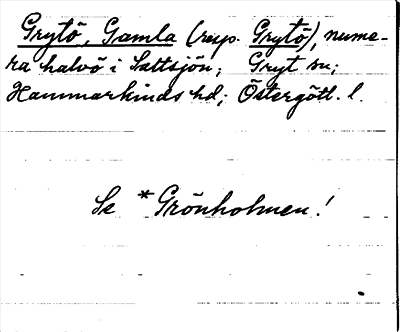 Grytö, Gamla (resp. Grytö), nume-
ra halvö i Lattsjön; Gryt sn;
Hammarkinds hd; Östergötl. l.
Se *Grönholmen!